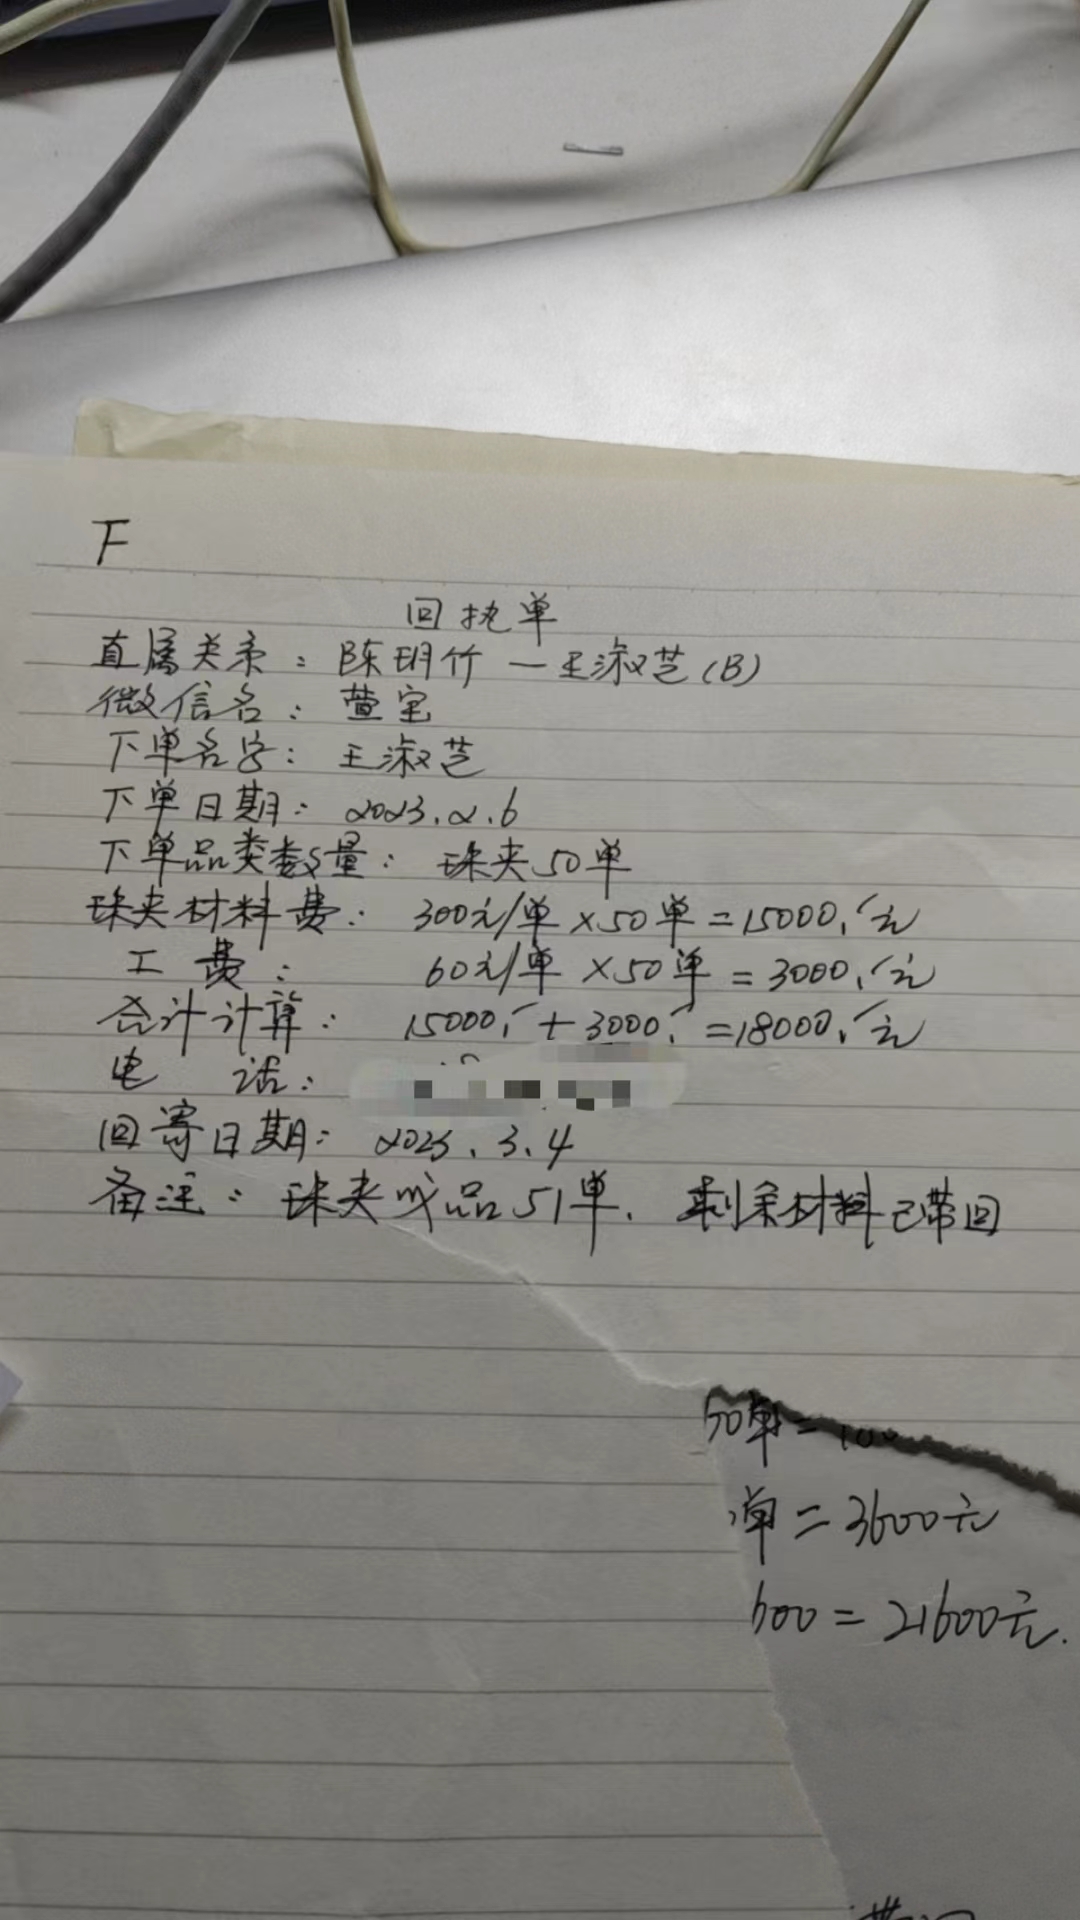 下
回执单
直属关系：陈玥竹—王淑芝(B)
微信名：萱宝
下单名字：王淑芝
下单日期：2023.2.6
下单品类数量：珠夹50单
珠夹材料费：300元/单×50单=15000.元
工费：60元/单×50单=3000.元
合计计算：15000.+3000.=18000.元
电话：
回寄日期：2023.3.4
备注：珠夹成品51单.剩余材料已带回
50单=
单=3600元
600=21600元.